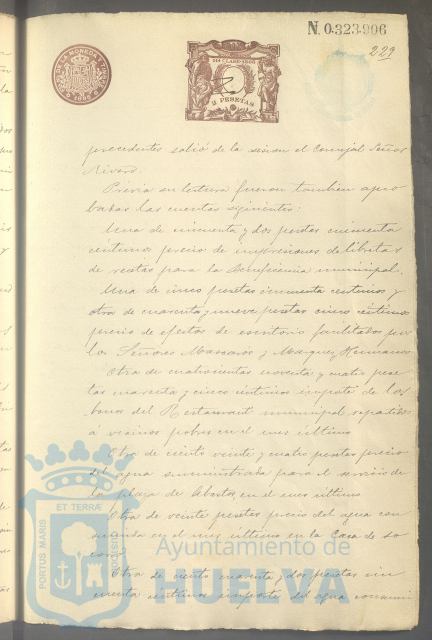 N. 0.323.906
229
DE LA MONEDA Y
1896
2 PESETAS
precedentes salió de la sesion el Concejal Señor
Rivero.
Prévia su lectura fueron tambien apro
badas las cuentas siguientes:
Una de cincuenta y dos pesetas cincuenta
céntimos precio de impresiones de libretas
de recetas para la Beneficencia municipal.
Una de cinco pesetas cincuenta centimos y
otra de cuarenta y nueve pesetas cinco céntimos
precio de efectos de escritorio facilitados por
los Señores Masearós y Marquez Hermanos
Otra de cuatrocientas noventa y cuatro pese
tas cuarenta y cinco céntimos importe de los
bonos del Restaurant municipal repartidos
á vecinos pobres en el mes último
Otra de ciento veinte y cuatro pesetas precio
del agua suministrada para el servicio de
la plaza de Abastos, en el mes último
Otra de veinte pesetas precio del agua con
sumida en el mes último en la Casa de so
corro
Otra de ciento cuarenta y dos pesetas cin
cuenta céntimos importe del agua consumi
ET TERRÆ
PORTUS MARIS
CUSTODIA
Ayuntamiento de
HUELVA